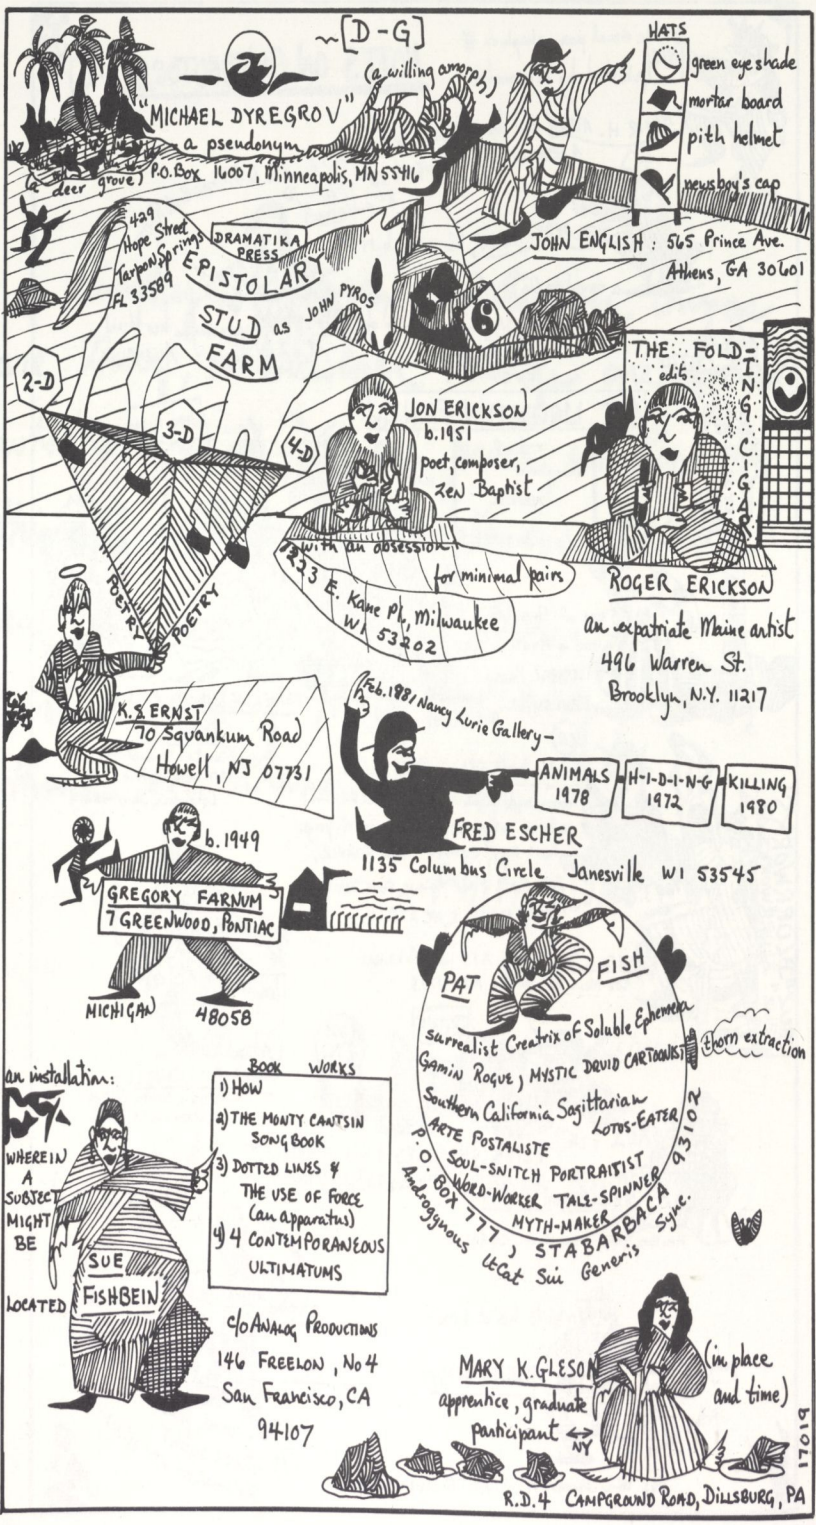 ~[D-G]
"MICHAEL DYREGROV"
a pseudonym
(a willing amorph)
(a deer grove)
P.O. Box 16007, Minneapolis, MN 55416
HATS
green eye shade
mortar board
pith helmet
newsboy's cap
JOHN ENGLISH: 565 Prince Ave.
Athens, GA 30601
429
Hope Street
Tarpon Springs
FL 33589
DRAMATIKA
PRESS
EPISTOLARY
STUD as JOHN PYROS
FARM
2-D
3-D
4-D
POETRY
POETRY
JON ERICKSON
b.1951
poet, composer,
Zen Baptist
with an obsession
for minimal pairs
1223 E. Kane Pl., Milwaukee
WI 53202
THE FOLD-
ING CIGAR
edits
ROGER ERICKSON
an expatriate Maine artist
496 Warren St.
Brooklyn, N.Y. 11217
K.S. ERNST
70 Squankum Road
Howell, NJ 07731
Feb. 1981 Nancy Lurie Gallery—
ANIMALS
1978
H-I-D-I-N-G
1972
KILLING
1980
FRED ESCHER
1135 Columbus Circle Janesville WI 53545
b.1949
GREGORY FARNUM
7 GREENWOOD, PONTIAC
MICHIGAN 48058
PAT FISH
Surrealist Creatrix of Soluble Ephemera
GAMIN ROGUE, MYSTIC DRUID CARTOONIST
Southern California Sagittarian
LOTUS-EATER
ARTE POSTALISTE
SOUL-SNITCH PORTRAITIST
WORD-WORKER TALE-SPINNER
MYTH-MAKER
P.O. BOX 777, STABARBACA 93102
Androgynous ItCat Sui Generis Sync.
thorn extraction
an installation:
WHEREIN
A
SUBJECT
MIGHT
BE
LOCATED
SUE
FISHBEIN
BOOK WORKS
1) HOW
2) THE MONTY CANTSIN
SONGBOOK
3) DOTTED LINES &
THE USE OF FORCE
(an apparatus)
4) 4 CONTEMPORANEOUS
ULTIMATUMS
c/o ANALOG PRODUCTIONS
146 FREELON, No 4
San Francisco, CA
94107
MARY K. GLESON
apprentice, graduate
participant ↔
NY
(in place
and time)
R.D.4 CAMPGROUND ROAD, DILLSBURG, PA
17019